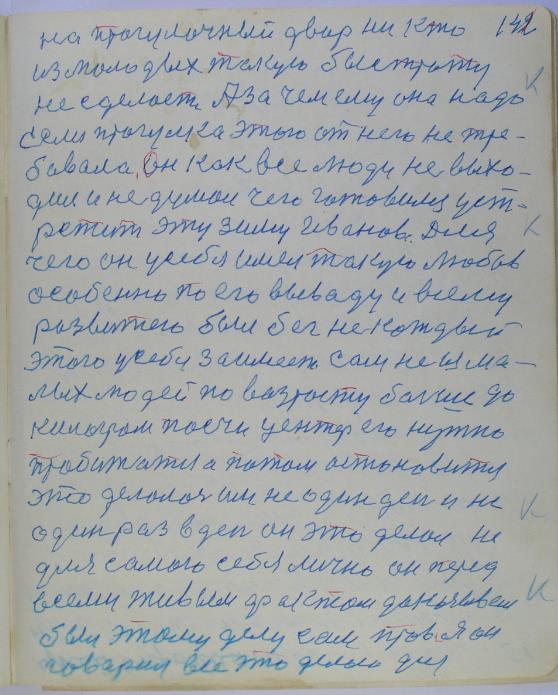 на прогулочный двор ни кто 142
из молодых такую быстроту
не сделает. А зачем ему она надо
если прогулка этого от него не тре-
бовала, Он как все люди не выхо-
дил и не думал чего готовился уст-
ретить эту зиму Иванов. Для
чего он у себя имел такую любов
особенно по его вываду и всему
развитего был бег не каждый
этого у себя заимеет. Сам не из ма-
лых людей по возрасту больше до
килограм посчи центр его нужно
пробижатся а потом остоновится
это делалос им не один ден и не
один раз в ден он это делал не
для самого себя лично он перед
всеми живым фактом доказывал
был этому делу сам прав. Я он
говорил все это делаю для